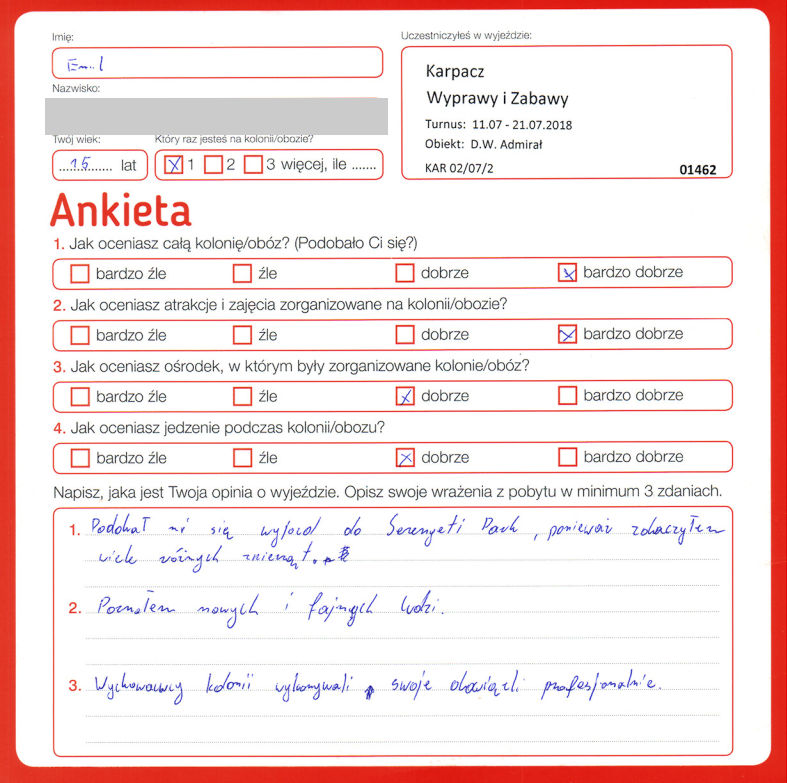 Imię:
Emil
Nazwisko:
Twój wiek:
15 lat
Który raz jesteś na kolonii/obozie?
X 1 2 3 więcej, ile .......
Uczestniczyłeś w wyjeździe:
Karpacz
Wyprawy i Zabawy
Turnus: 11.07 - 21.07.2018
Obiekt: D.W. Admirał
KAR 02/07/2 01462
Ankieta
1. Jak oceniasz całą kolonię/obóz? (Podobało Ci się?)
bardzo źle źle dobrze X bardzo dobrze
2. Jak oceniasz atrakcje i zajęcia zorganizowane na kolonii/obozie?
bardzo źle źle dobrze X bardzo dobrze
3. Jak oceniasz ośrodek, w którym były zorganizowane kolonie/obóz?
bardzo źle źle X dobrze bardzo dobrze
4. Jak oceniasz jedzenie podczas kolonii/obozu?
bardzo źle źle X dobrze bardzo dobrze
Napisz, jaka jest Twoja opinia o wyjeździe. Opisz swoje wrażenia z pobytu w minimum 3 zdaniach.
1. Podobał mi się wyjazd do Serengeti Park, ponieważ zobaczyłem
wiele różnych zwierząt.
2. Poznałem nowych i fajnych ludzi.
3. Wychowawcy kolonii wykonywali swoje obowiązki profesjonalnie.